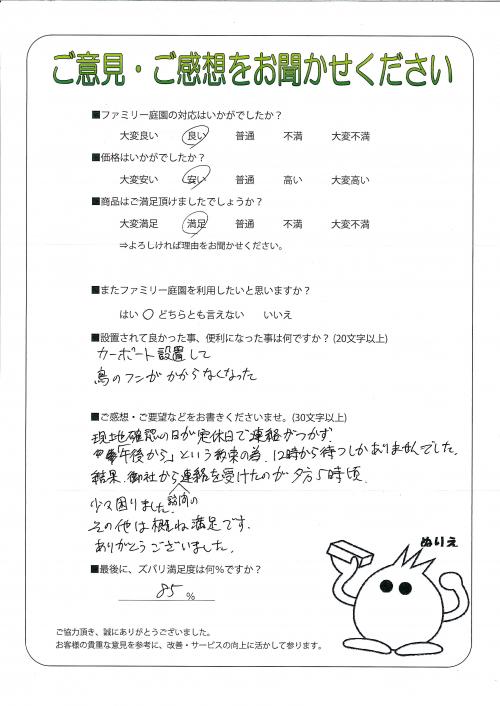 ご意見・ご感想をお聞かせください
■ファミリー庭園の対応はいかがでしたか？
大変良い 良い 普通 不満 大変不満
■価格はいかがでしたか？
大変安い 安い 普通 高い 大変高い
■商品はご満足頂けましたでしょうか？
大変満足 満足 普通 不満 大変不満
⇒よろしければ理由をお聞かせください。
■またファミリー庭園を利用したいと思いますか？
はい ○ どちらとも言えない いいえ
■設置されて良かった事、便利になった事は何ですか？(20文字以上)
カーポート設置して
鳥のフンがかからなくなった
■ご感想・ご要望などをお書きくださいませ。(30文字以上)
現地確認の日が定休日で連絡がつかず
「午後から」という約束の為、12時から待つしかありませんでした。
結果、御社から訪問の連絡を受けたのが夕方5時頃、
少々困りました。
その他は概ね満足です。
ありがとうございました。
■最後に、ズバリ満足度は何%ですか？
85 %
ぬりえ
ご協力頂き、誠にありがとうございました。
お客様の貴重な意見を参考に、改善・サービスの向上に活かして参ります。